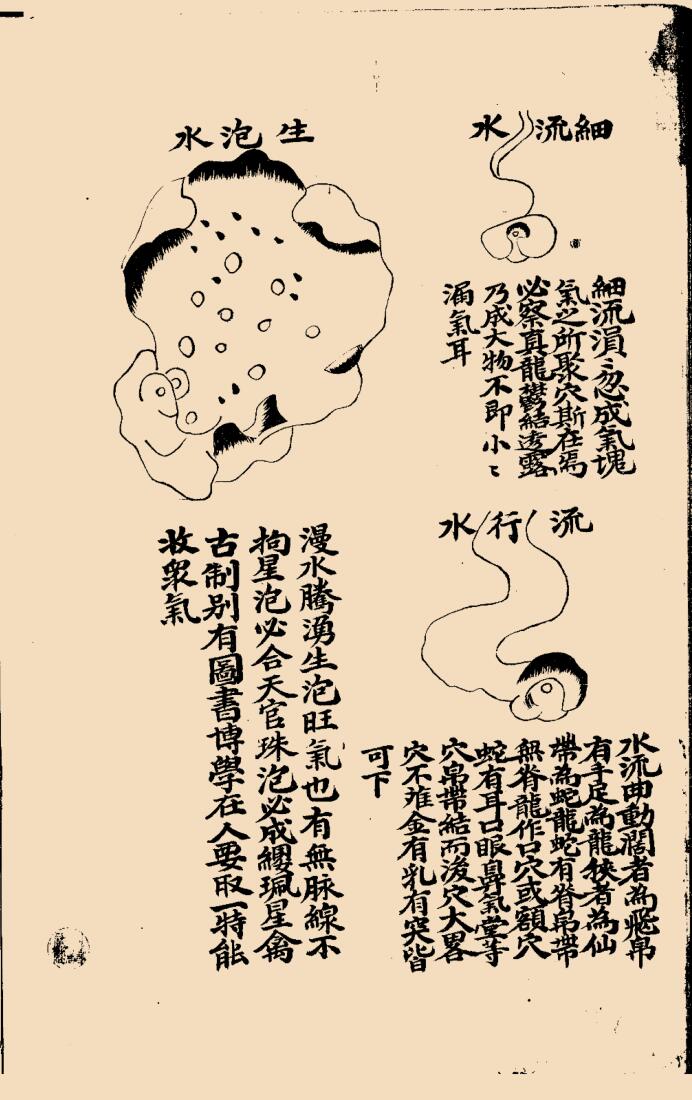 細流水
細流涓〻忽成氣塊
氣之所聚穴斯在焉
必察真龍鬱結透露
乃成大物不即小〻
漏氣耳
流行水
水流曲動濶者為飛帛
有手足為龍狹者為仙
帶為蛇龍蛇有脊帛帶
無脊龍作口穴或額穴
蛇有耳口眼鼻氣堂等
穴帛帶結而後穴大畧
穴不離金有乳有突皆
可下
生泡水
漫水騰湧生泡旺氣也有無脉線不
拘星泡必合天官珠泡必成纓珮星禽
古制别有圖書博學在人要取一特能
收衆氣